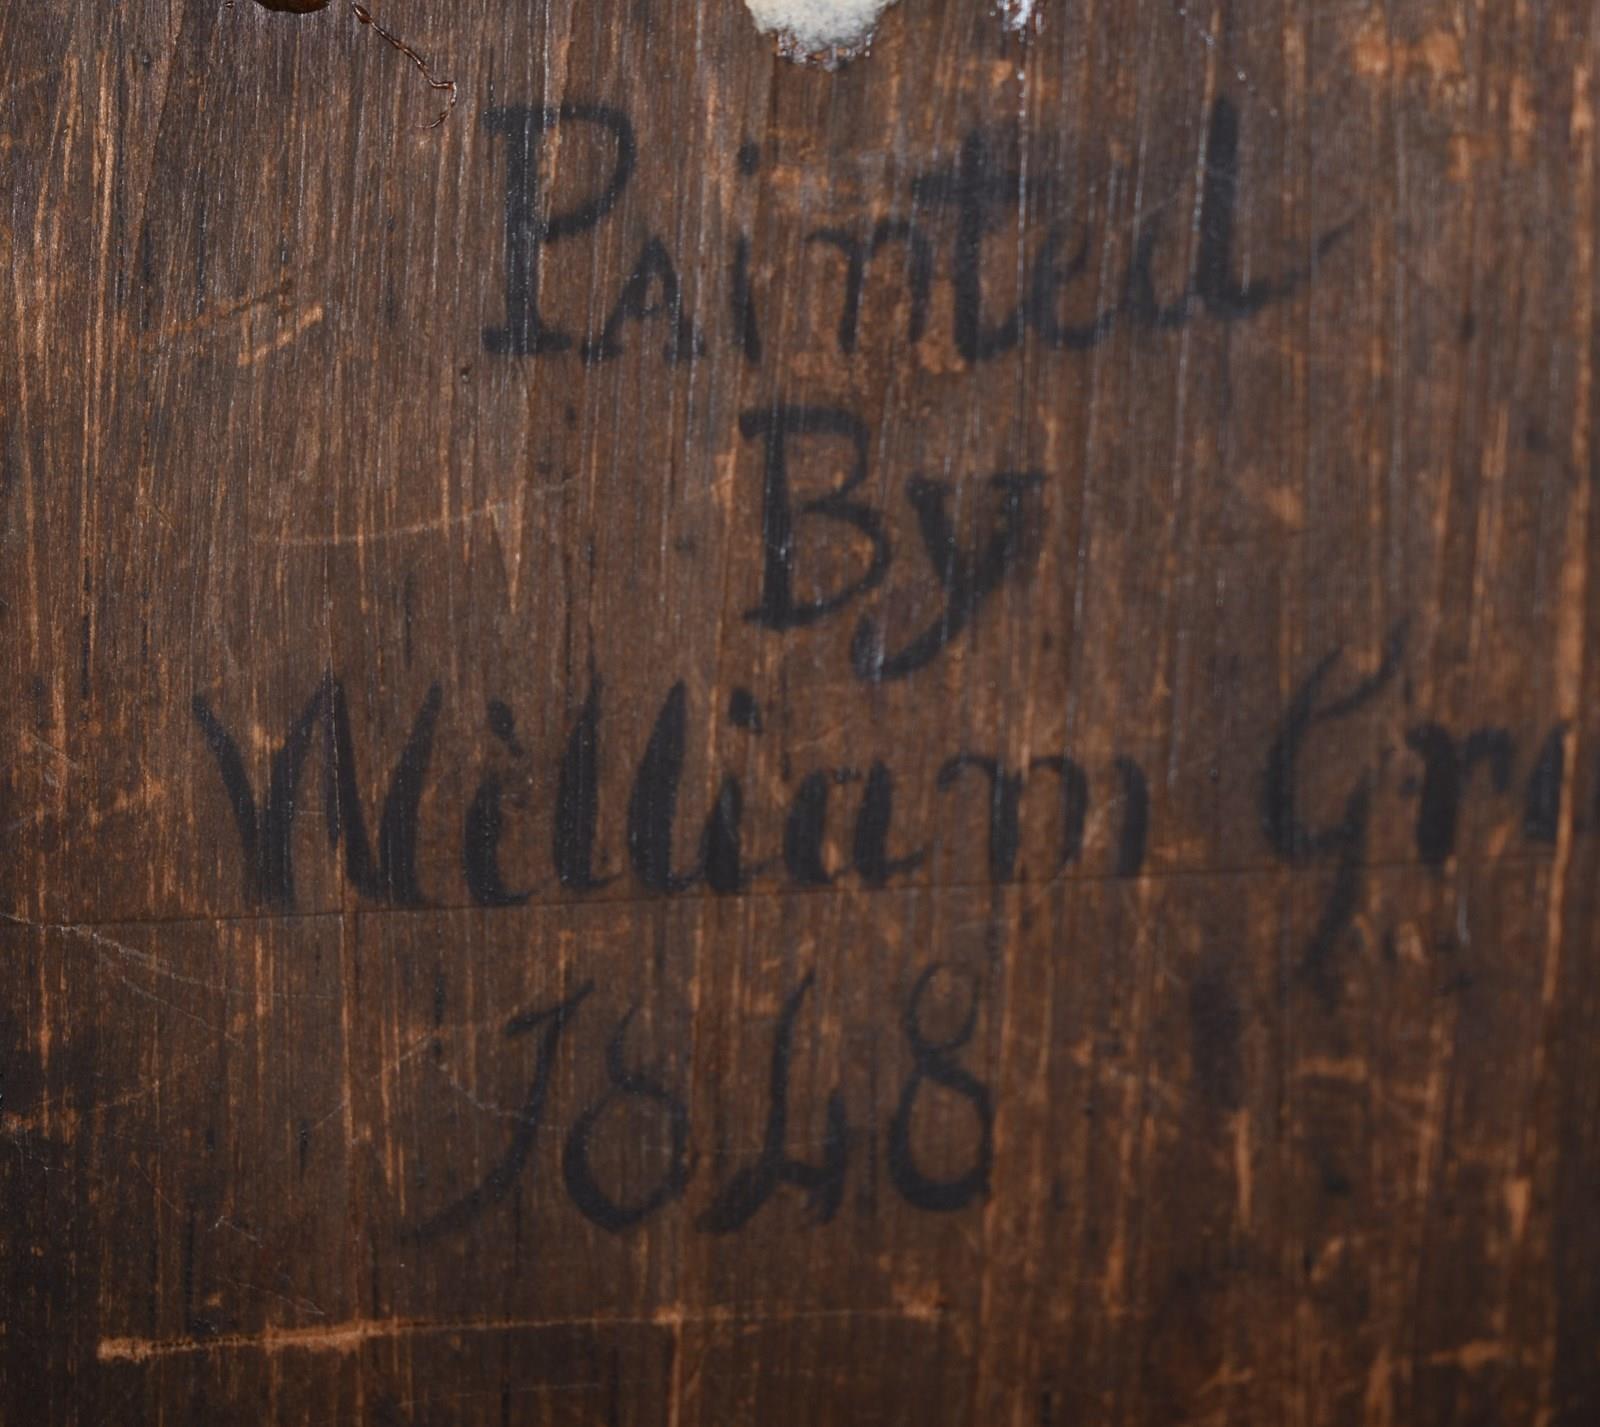 Painted
By
William Gr
1848